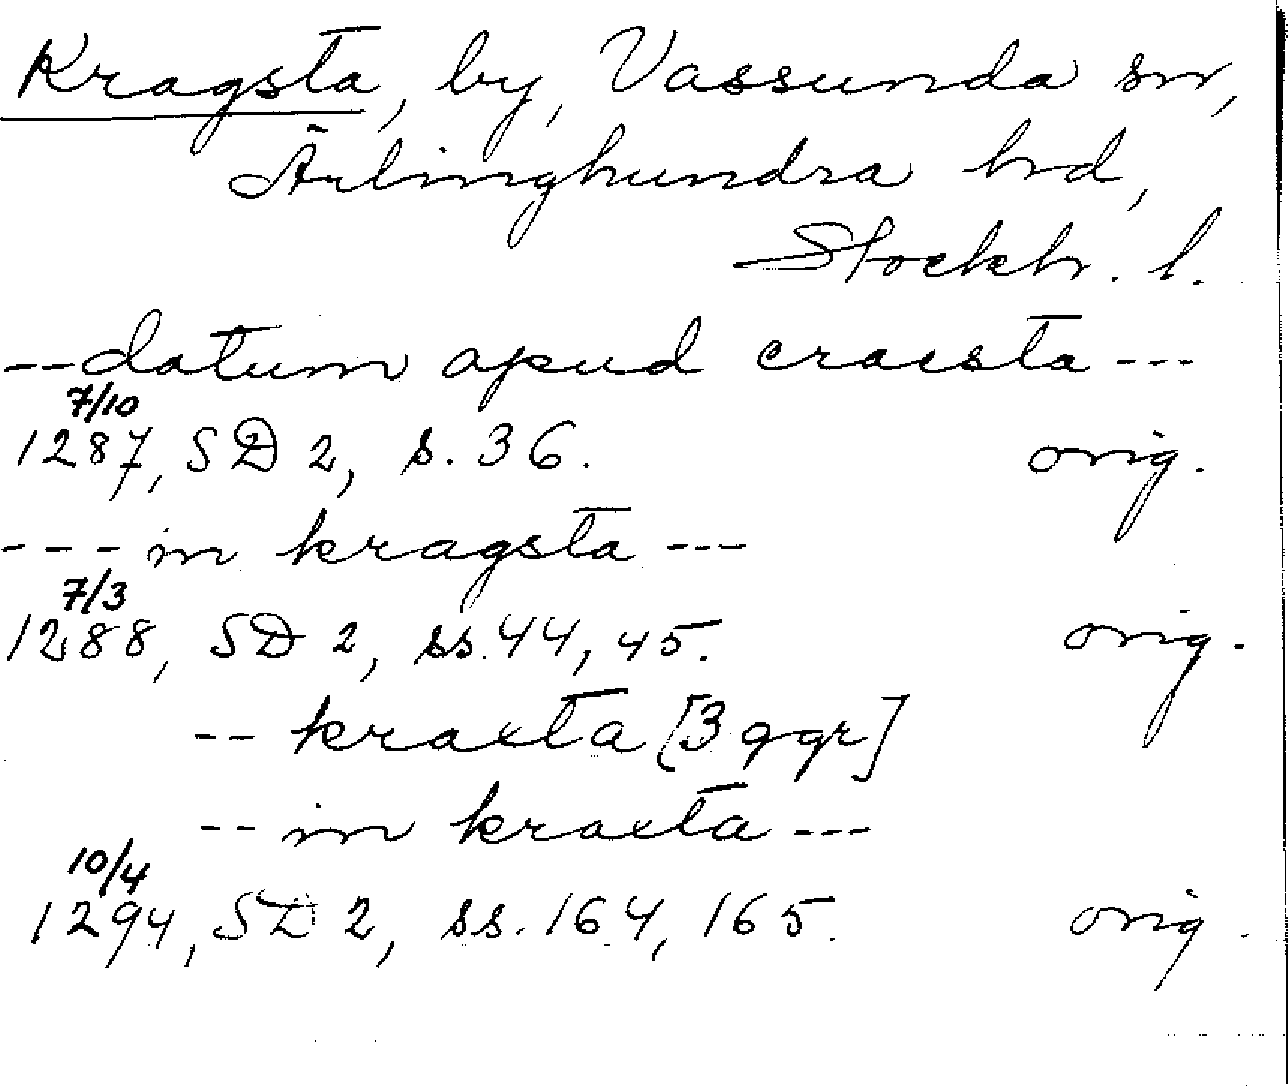 Kragsta, by, Vassunda sn,
Ärlinghundra hd,
Stockh. l.
-- datum apud cracsta ---
7/10
1287, SD 2, s. 36. orig.
--- in kragsta ---
7/3
1288, SD 2, ss. 44, 45. orig.
-- kraxta [3 ggr]
-- in kraxta ---
10/4
1294, SD 2, ss. 164, 165. orig.